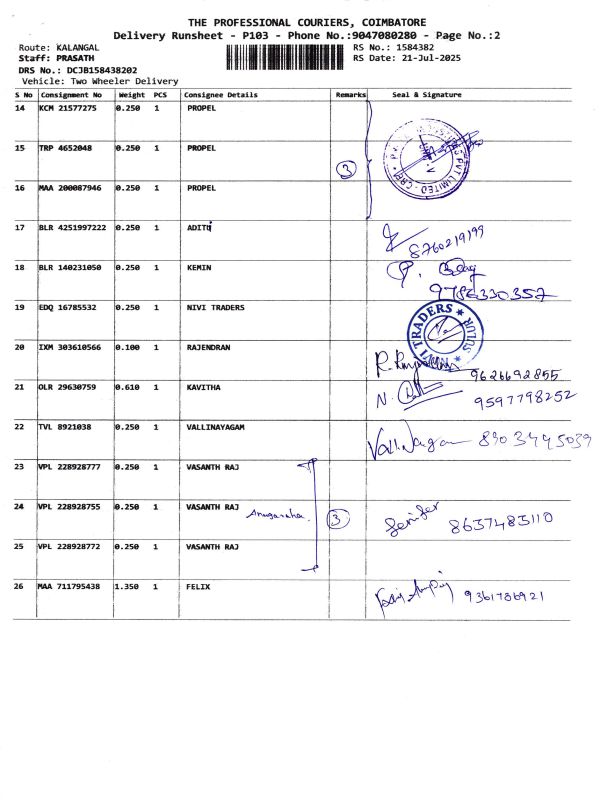 THE PROFESSIONAL COURIERS, COIMBATORE
Delivery Runsheet - P103 - Phone No.:9047080280 - Page No.:2
Route: KALANGAL
RS No.: 1584382
Staff: PRASATH
RS Date: 21-Jul-2025
DRS No.: DCJB158438202
Vehicle: Two Wheeler Delivery
S No Consignment No Weight PCS Consignee Details Remarks Seal & Signature
14 KCM 21577275 0.250 1 PROPEL
15 TRP 4652048 0.250 1 PROPEL
3
PVT LIMITED
16 MAA 200087946 0.250 1 PROPEL
17 BLR 4251997222 0.250 1 ADITI
8760219199
18 BLR 140231050 0.250 1 KEMIN
9786330357
19 EDQ 16785532 0.250 1 NIVI TRADERS
NIVI TRADERS SULUR
20 IXM 303610566 0.100 1 RAJENDRAN
9626692855
21 OLR 29630759 0.610 1 KAVITHA
9597798252
22 TVL 8921038 0.250 1 VALLINAYAGAM
8903445039
23 VPL 228928777 0.250 1 VASANTH RAJ
24 VPL 228928755 0.250 1 VASANTH RAJ
Anugaraha. 3 Jenifer 8637483110
25 VPL 228928772 0.250 1 VASANTH RAJ
26 MAA 711795438 1.350 1 FELIX
9361786921